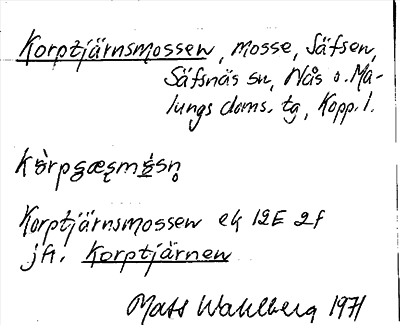 Korptjärnsmossen, mosse, Säfsen,
Säfsnäs sn, Nås o. Ma-
lungs doms. tg, Kopp. l.
Korptjärnsmossen ek 12E 2f
jfr. Korptjärnen
Mats Wahlberg 1971